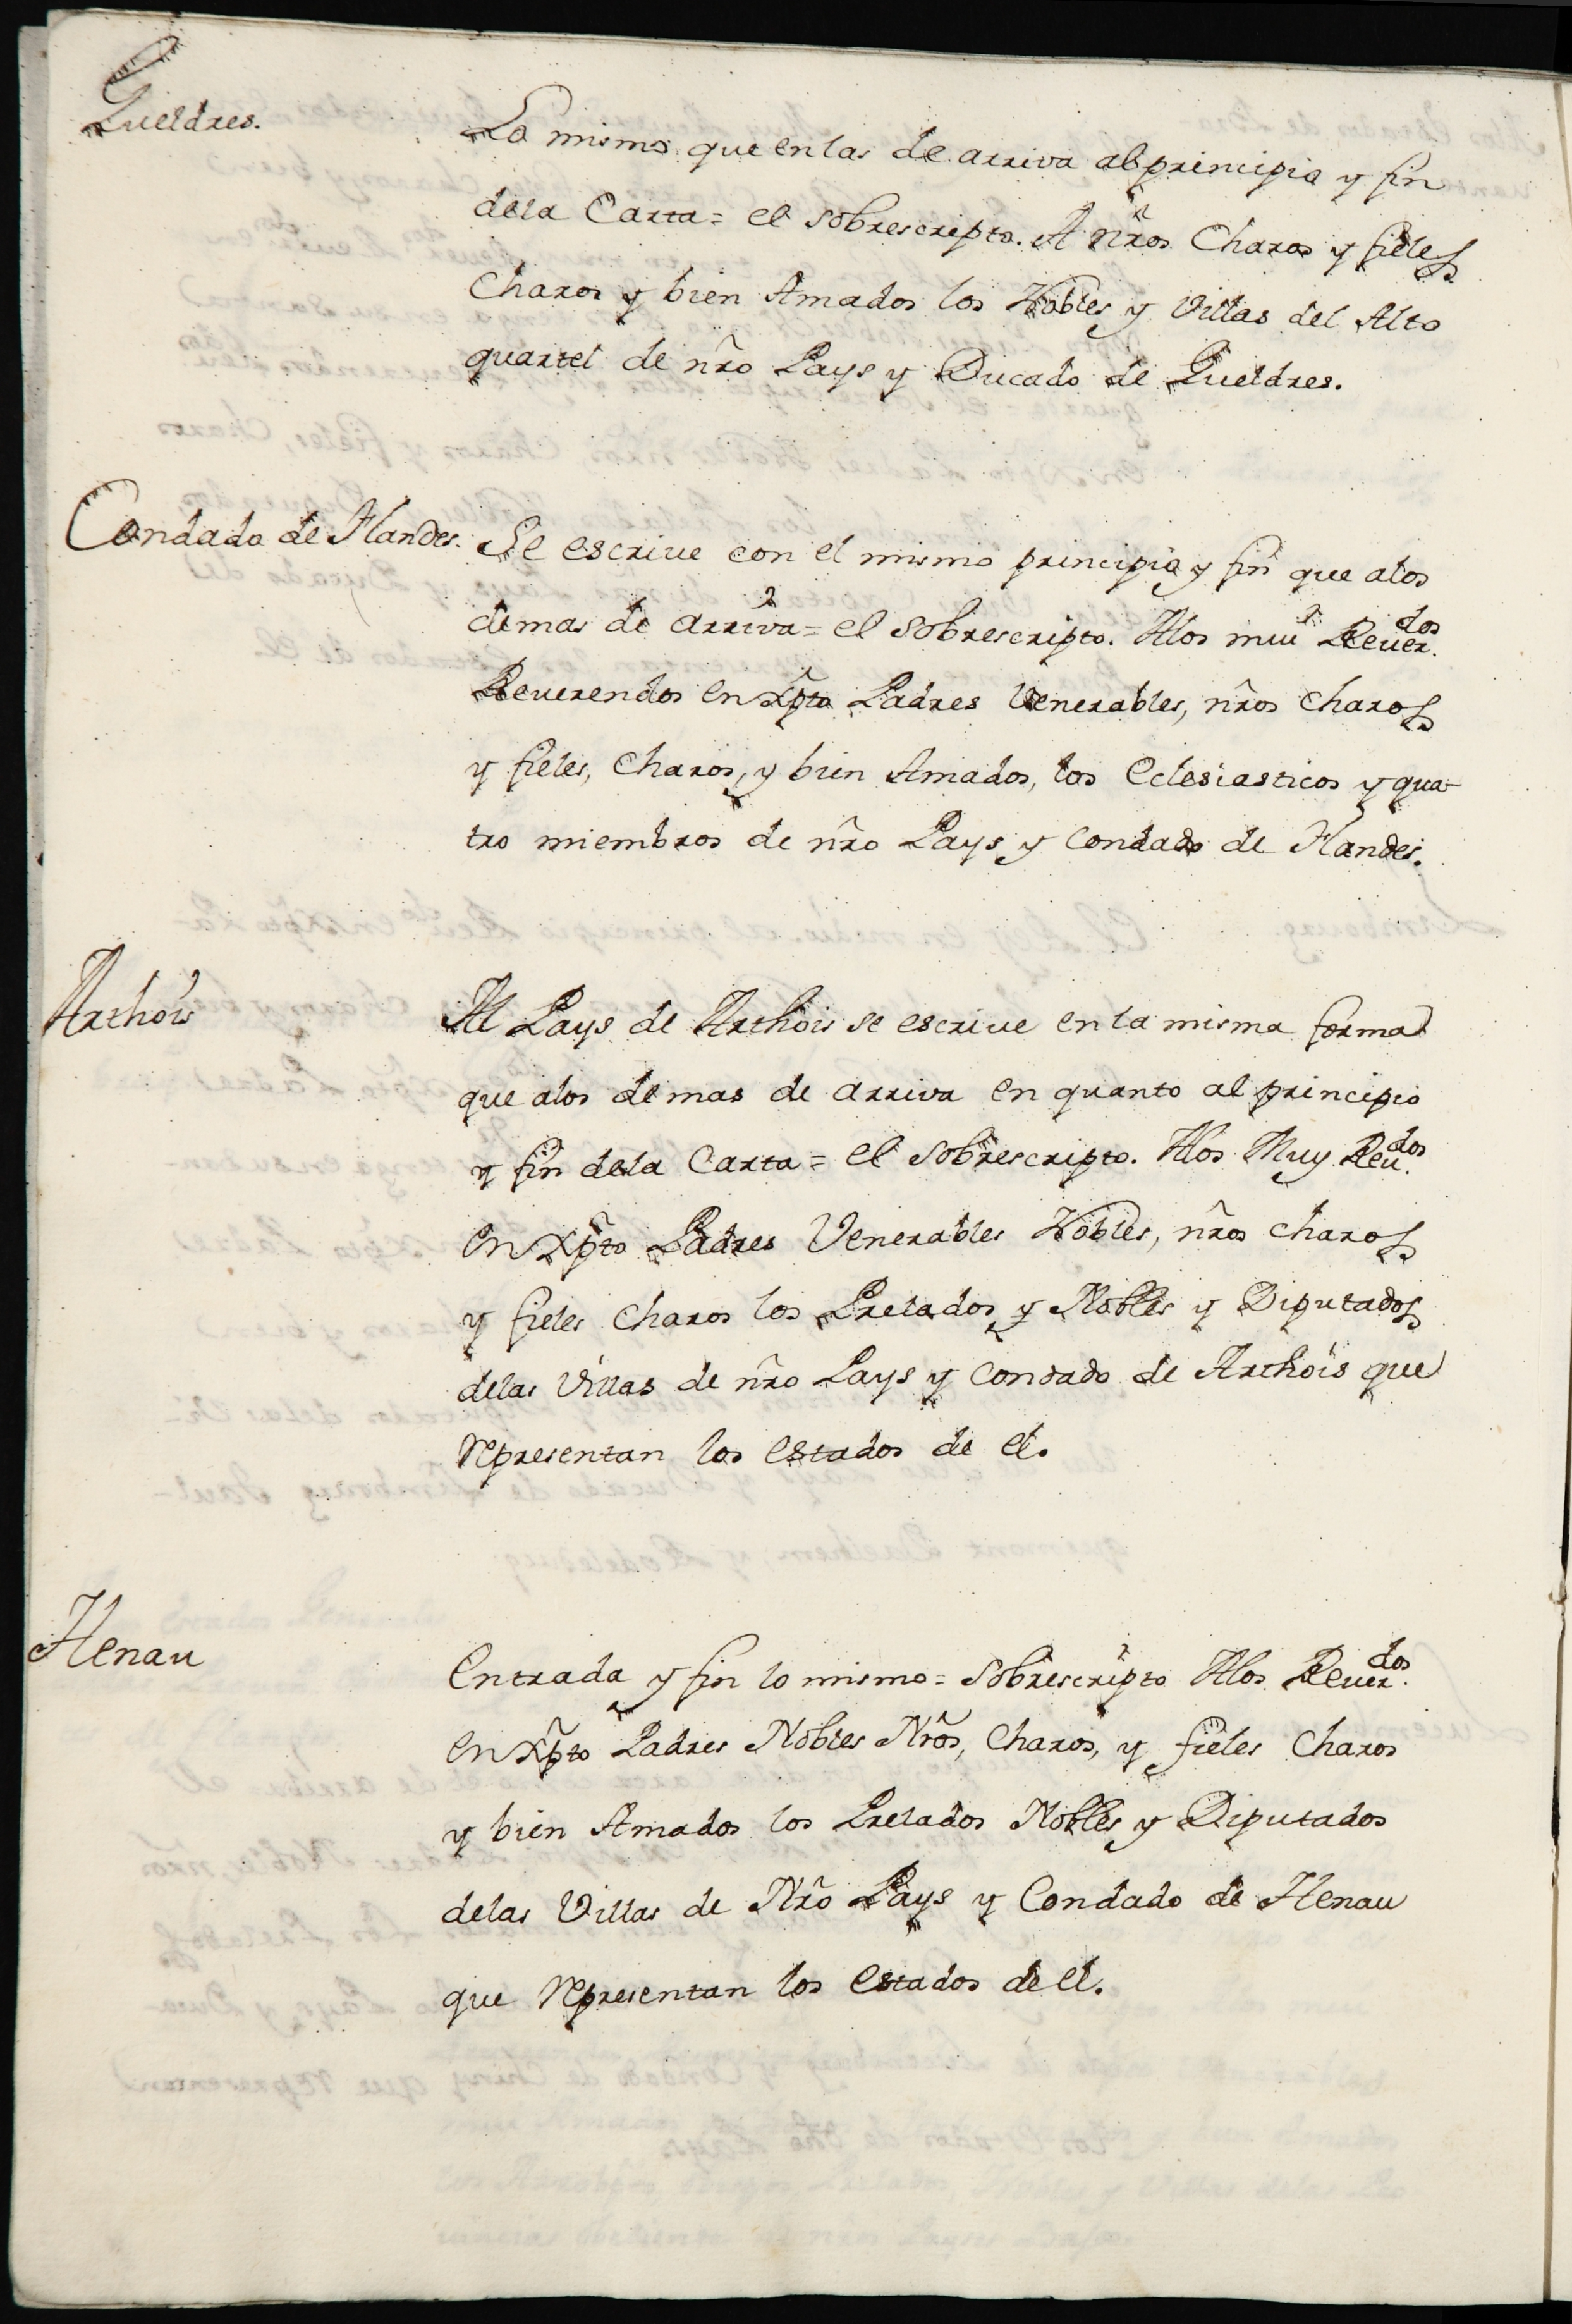 Gueldres.
Lo mismo que en las de arriva al principio y fin
dela Carta = el sobrescripto. A nr̃os Charos y fieles
Charos y bien Amados los Nobles y Villas del Alto
quartel de nr̃o Pays y Ducado de Gueldres.
Condado de Flandes.
Se escriue con el mismo principio y fin que alos
demas de arriva = el sobrescripto. Alos mui Reuer.dos
Reuerendos en Xp̃to Padres Venerables, nr̃os charos
y fieles, Charos, y bien Amados, los Eclesiasticos y qua-
tro miembros de nr̃o Pays y Condado de Flandes.
Arthois
Al Pays de Arthois se escriue en la misma forma
que alos demas de arriva en quanto al principio
y fin dela Carta = el sobrescripto. Alos Muy Reu.dos
en Xp̃to Padres Venerables Nobles, nr̃os charos
y fieles Charos los Prelados y Nobles y Diputados
delas Villas de nr̃o Pays y Condado de Arthois que
representan los estados de el.
Henau
Entrada y fin lo mismo = sobrescripto Alos Reuer.dos
en Xp̃to Padres Nobles Nr̃os, Charos, y fieles Charos
y bien Amados los Prelados Nobles y Diputados
delas Villas de Nr̃o Pays y Condado de Henau
que representan los estados de el.